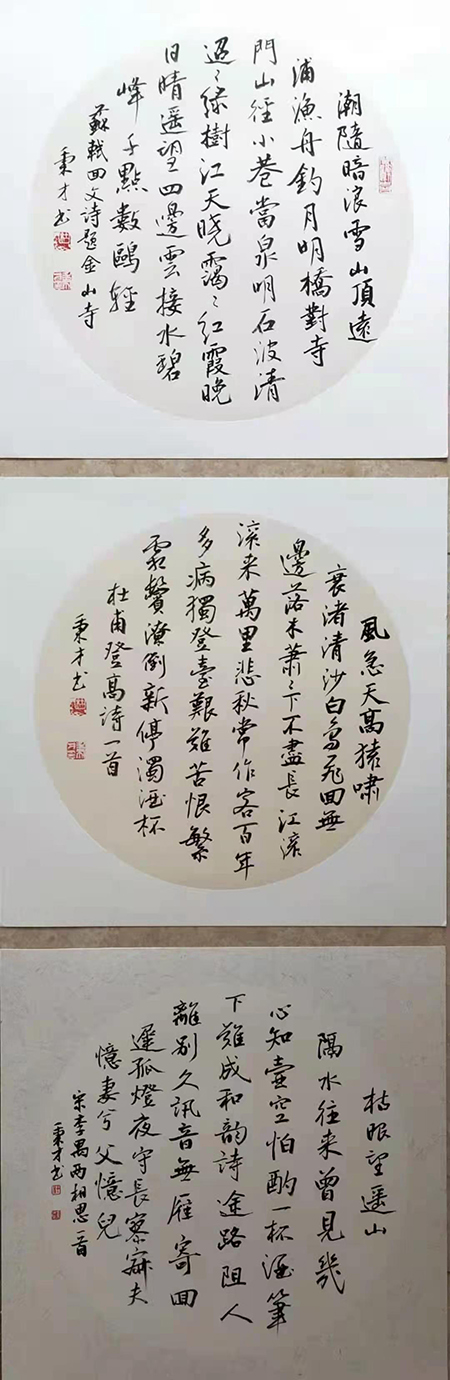 潮隨暗浪雪山頂遠
浦漁舟釣月明橋對寺
門山徑小巷當泉明石波清
迢〻綠樹江天曉靄〻紅霞晚
日晴遥望四邊雲接水碧
峰千點數鷗輕
蘇軾回文詩題金山寺
秉才书
風急天高猿嘯
哀渚清沙白鳥飛回無
邊落木蕭〻下不盡長江滚
滚来萬里悲秋常作客百年
多病獨登臺艱難苦恨繁
霜鬢潦倒新停濁酒杯
杜甫登高詩一首
秉才书
枯眼望遥山
隔水往来曾見幾
心知壶空怕酌一杯酒筆
下難成和韵詩途路阻人
離别久訊音無雁寄回
遲孤燈夜守長寥寂夫
憶妻兮父憶兒
宋李禺两相思一首
秉才书